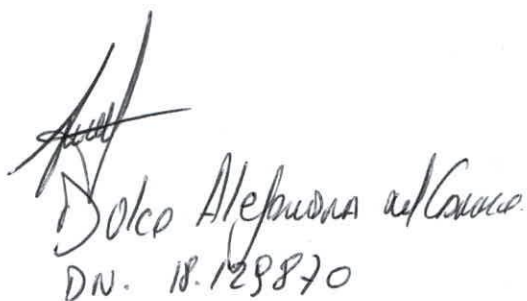 Dolce Alejandra del Carmen
DN. 18.129870